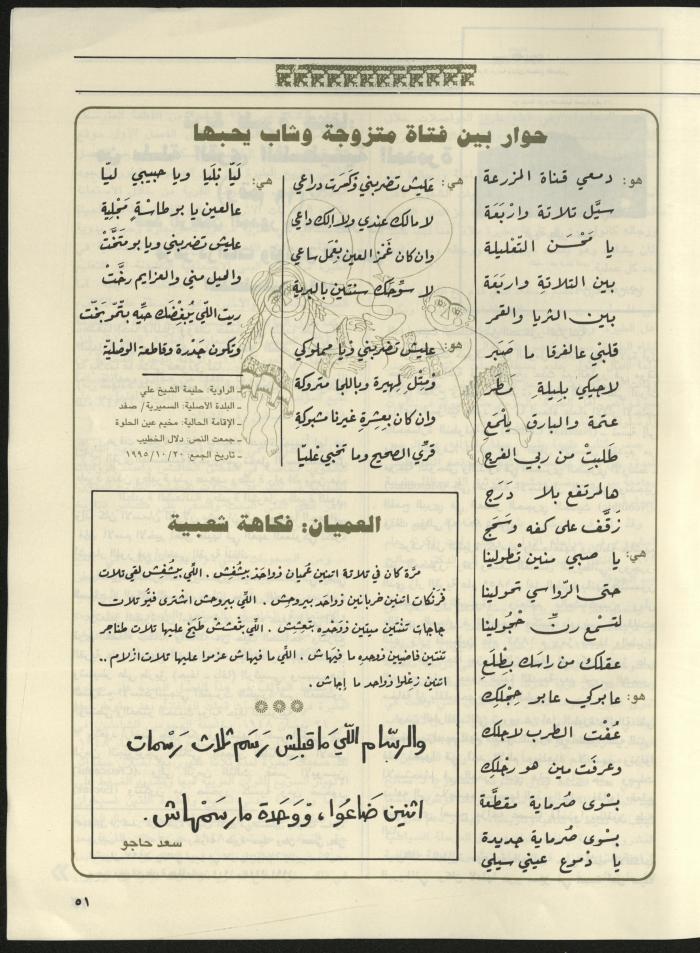 حوار بين فتاة متزوجة وشاب يحبها
هو: دمعي قناة المزرعة
سيَّل تلاتة وارْبَعَة
يا مَحْسَن التعْليلة
بين التلاتةِ واربَعَة
بين الثريا والقمر
قلبي عالفرقا ما صَبَر
لاجيكي بليلةِ مطر
عتمة والبارق يلْمَع
طَلبِتْ من ربي الفرج
هالمرتفع بلا دَرَج
زَقَّف على كفه وسَحَج
هي: يا صبي منين تْطولينا
حتى الرّواسي تحولينا
لتسْمع رنّ حْجُولينا
عقلك من راسَك يطْلَع
هو: عابوكي عابو حِجْلِك
عُفْت الطرب لاجلك
وعرفَت مين هو رجْلِك
بسْوى صُرماية مقطَّعة
بسْوى صُرماية جديدة
يا دموع عيني سيلي
هي: عَليش تضربني وكَسَرت دراعي
لا مالك عندي ولا إلك داعي
وان كان غَمْز العين بِعْمَل ساعي
لا سوْحَك سنتين بالبرية
هو: عليش تضربني ويا مملوكي
ومِثْل لمهيرة وباللجا متروكة
وان كان بعِشرةِ غيرنا مشبوكةِ
قرّي الصحيح وما تخبي عَليّا
هي: ليّا بْليّا ويا حبيبي ليّا
عالعين يا بو طاسْةٍ مَجْلية
عليش تضربني ويا بو متَخَّتْ
والحيل مني والعزايم رخَّتْ
ريت اللّي يُبْغِضَك حيّه بتّمو بَخَّت
وتكون جَدْرة وقاطعة الوصْليّة
ـ الراوية: حليمة الشيخ علي
ـ البلدة الأصلية: السميرية/ صفد
ـ الإقامة الحالية: مخيم عين الحلوة
ـ جمعت النص: دلال الخطيب
ـ تاريخ الجمع: ٢٠/١٠/١٩٩٥
العميان: فكاهة شعبية
مرّة كان في تلاتة اتنين عُميان وواحَد بيشُفِش . اللّي بيشُفِش لقي تلات
فرَنكات اتنين خربانين وواحَد بيروحِش . اللّي بيروحش اشترى فيُّو تلات
جاجات تنْتين ميتين ووحْده بتعِيش . اللّي بتْعشش طَبَخ عليها تلات طناجر
تنتين فاضيين ووحده ما فيهاش . اللّي ما فيهاش عزموا عليها تلات ازلام ..
اتنين زعِلوا وواحد ما إجاش .
والرسّام اللّي ما قبلِش رَسَم ثلاث رَسْمات
اثنين ضَاعُوا، وْوَحَدة ما رسَمْهاش.
سعد حاجو
٥١